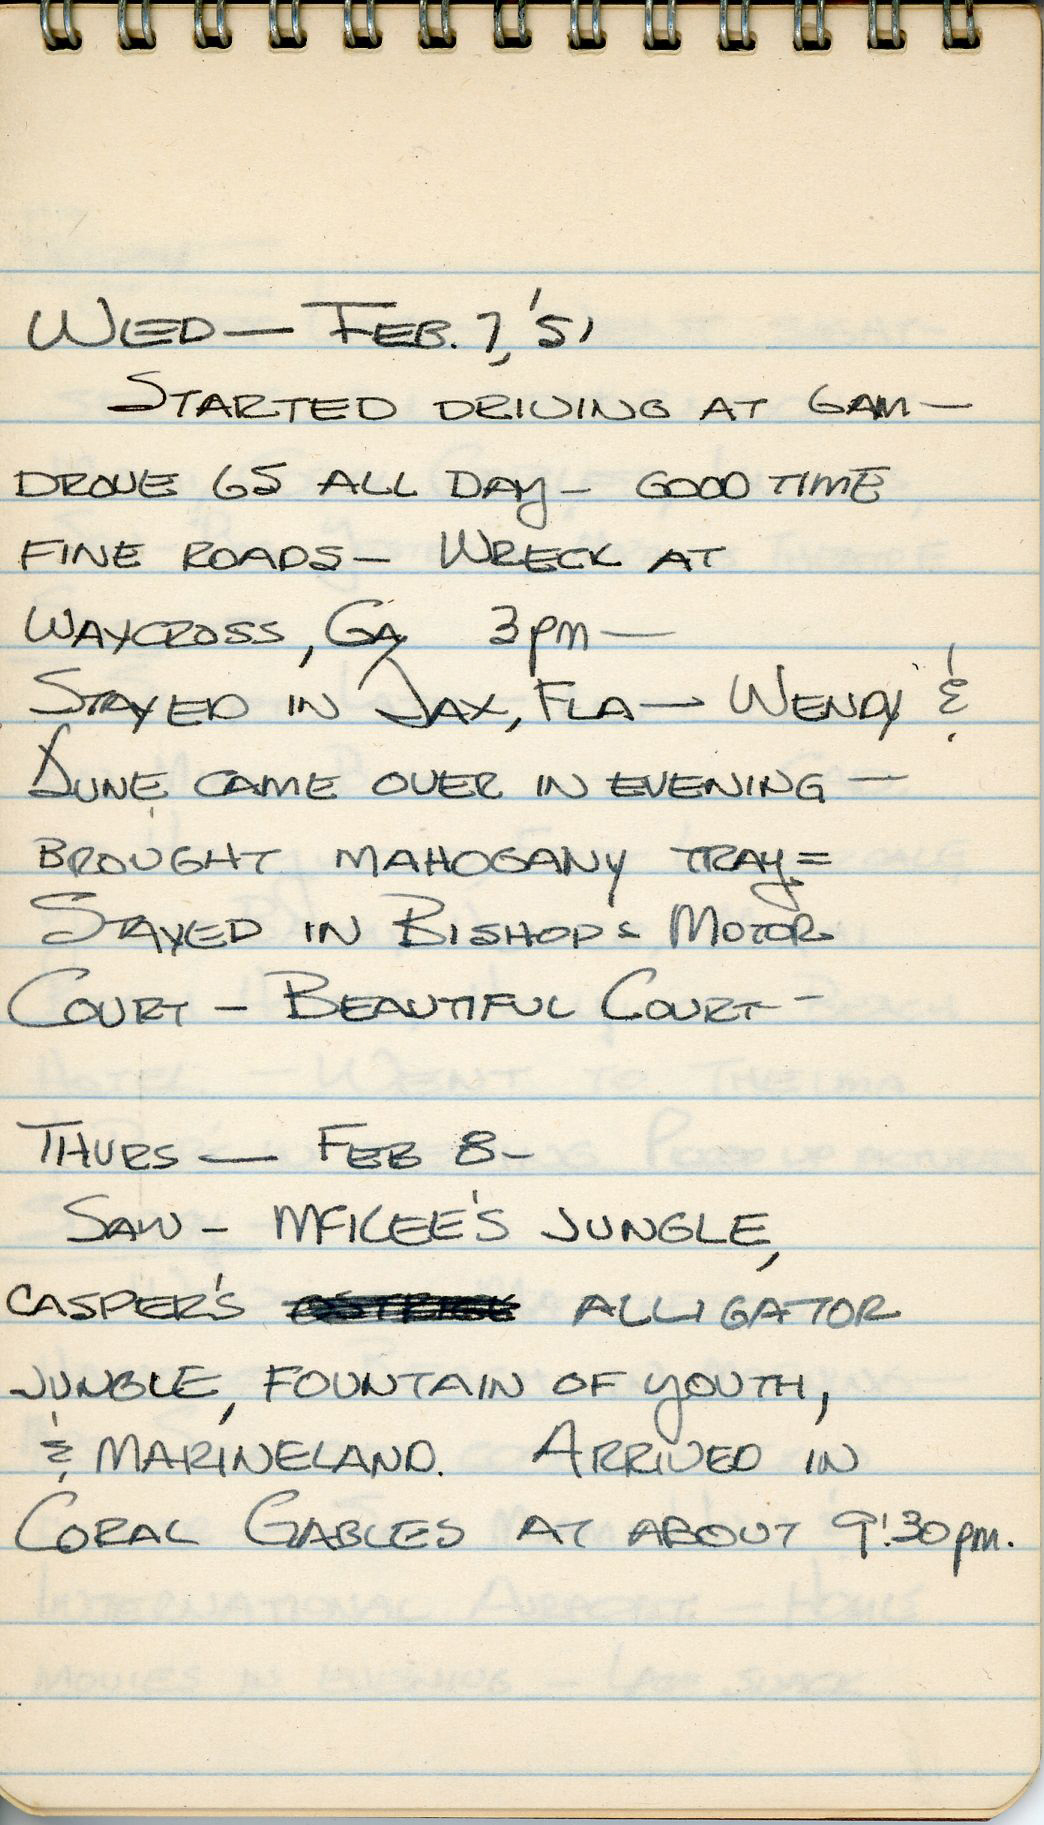 WED — FEB. 7, '51
STARTED DRIVING AT 6AM —
DROVE 65 ALL DAY — GOOD TIME
FINE ROADS — WRECK AT
WAYCROSS, GA 3pm —
STAYED IN JAX, FLA — WENDY &
JUNE CAME OVER IN EVENING —
BROUGHT MAHOGANY TRAY =
STAYED IN BISHOPS MOTOR
COURT — BEAUTIFUL COURT —
THURS — FEB 8 —
SAW — MCKEE'S JUNGLE,
CASPER'S ALLIGATOR
JUNGLE, FOUNTAIN OF YOUTH,
& MARINELAND. ARRIVED IN
CORAL GABLES AT ABOUT 9:30pm.